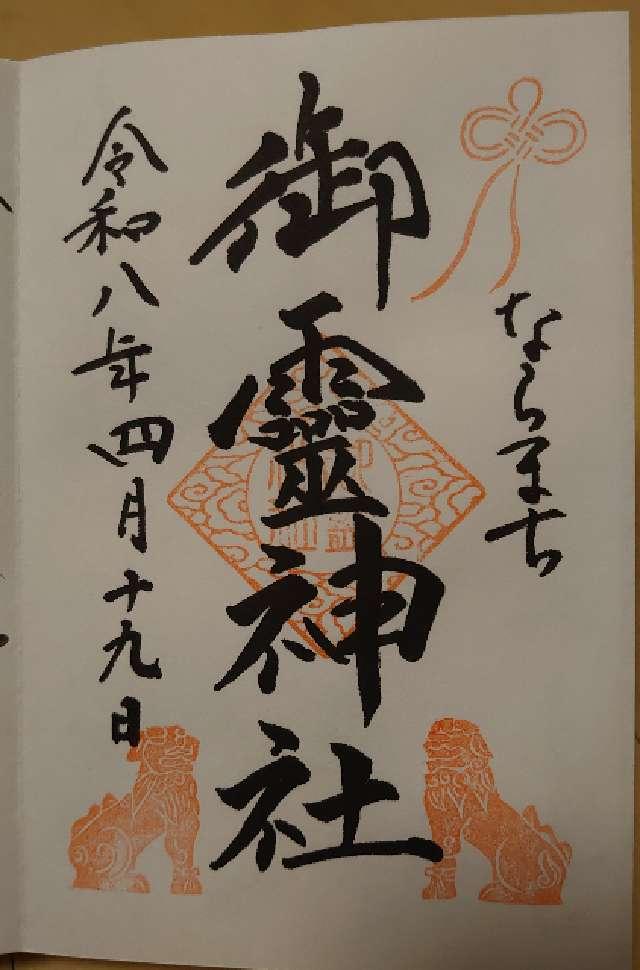 ならまち
御靈神社
令和八年四月十九日